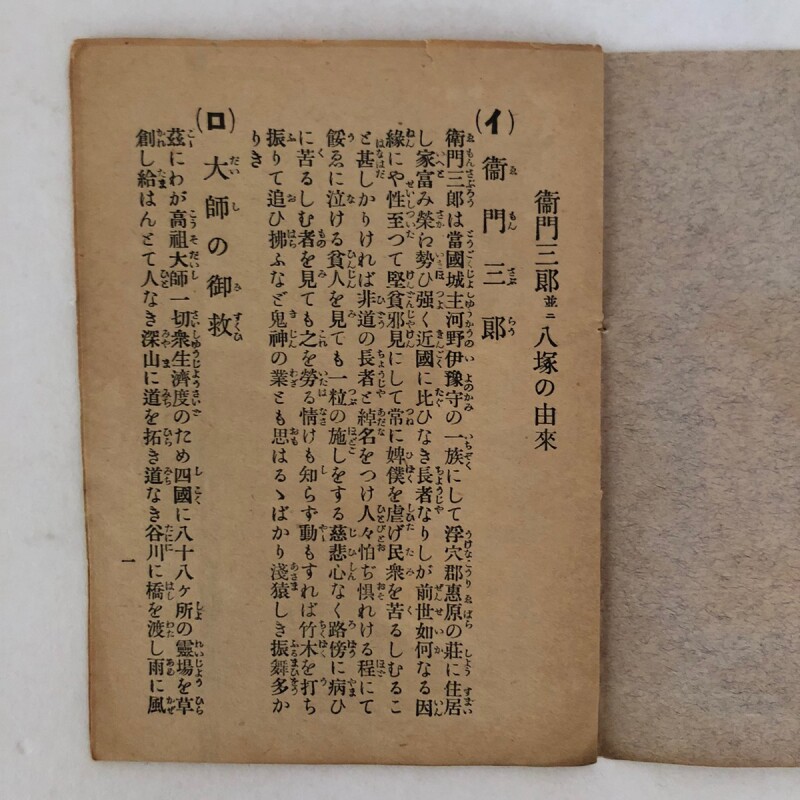 衞門三郎並ニ八塚の由來
(イ) 衞門三郎
衞門三郎は當國城主河野伊豫守の一族にして浮穴郡惠原の莊に住居
し家富み榮ね勢ひ强く近國に比ひなき長者なりしが前世如何なる因
緣にや性至つて堅貧邪見にして常に婢僕を虐げ民衆を苦るしむるこ
と甚しかりければ非道の長者と綽名をつけ人々怕ぢ惧れける程にて
餒ゑに泣ける貧人を見ても一粒の施しをする慈悲心なく路傍に病ひ
に苦るしむ者を見ても之を勞る情けも知らず動もすれば竹木を打ち
振りて追ひ拂ふなど鬼神の業とも思はるゝばかり淺猿しき振舞多か
りき
(ロ) 大師の御救
茲にわが高祖大師一切衆生濟度のため四國に八十八ヶ所の靈場を草
創し給はんとて人なき深山に道を拓き道なき谷川に橋を渡し雨に風
一